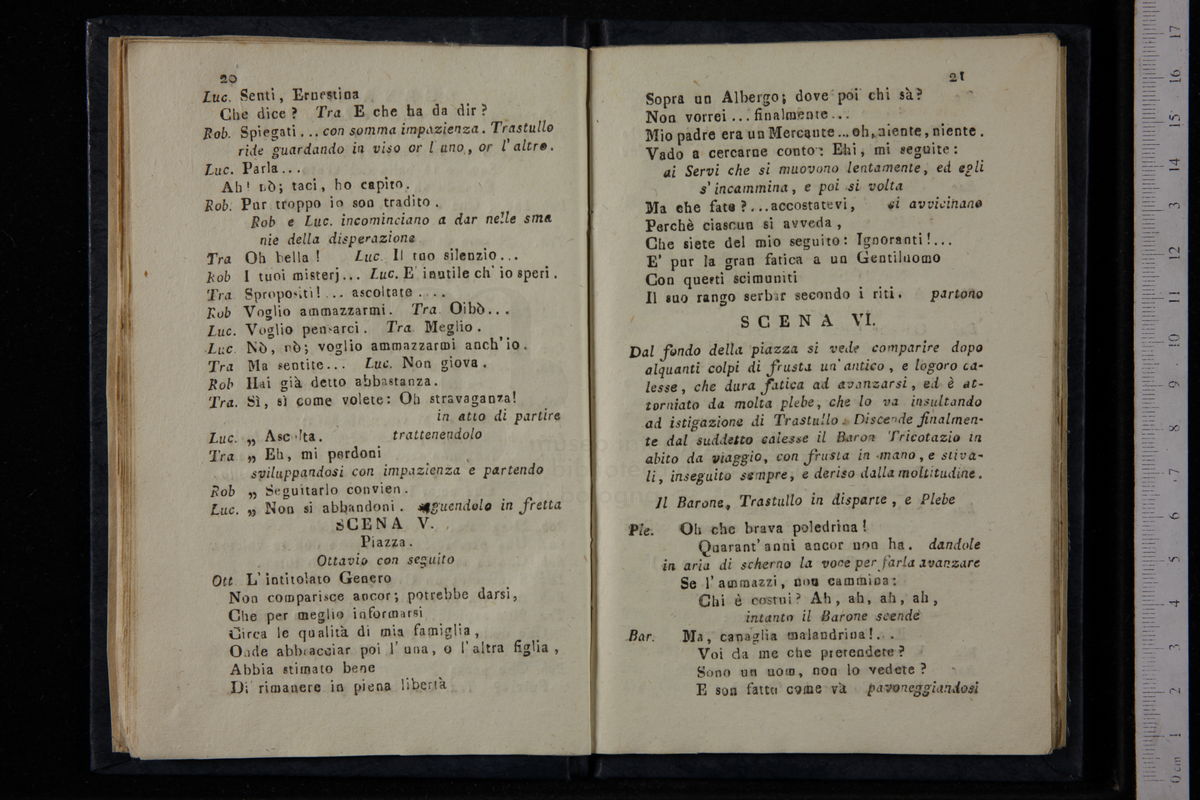 20
Luc. Senti, Ernestina
Che dice? Tra E che ha da dir?
Rob. Spiegati... con somma impazienza. Trastullo
ride guardando in viso or l' uno, or l' altro.
Luc. Parla...
Ah! nò; taci, ho capito.
Rob. Pur troppo io son tradito.
Rob e Luc. incominciano a dar nelle sma
nie della disperazione
Tra Oh bella! Luc. Il tuo silenzio...
Rob I tuoi misterj... Luc. E' inutile ch' io speri.
Tra Spropositi!... ascoltate....
Rob Voglio ammazzarmi. Tra Oibò...
Luc. Voglio pensarci. Tra Meglio.
Luc Nò, nò; voglio ammazzarmi anch'io.
Tra Ma sentite... Luc. Non giova.
Rob Hai già detto abbastanza.
Tra. Sì, sì come volete: Oh stravaganza!
in atto di partire
Luc. „ Ascolta. trattenendolo
Tra „ Eh, mi perdoni
sviluppandosi con impazienza e partendo
Rob „ Seguitarlo convien.
Luc. „ Non si abbandoni. seguendolo in fretta
SCENA V.
Piazza.
Ottavio con seguito
Ott L' intitolato Genero
Non comparisce ancor; potrebbe darsi,
Che per meglio informarsi
Circa le qualità di mia famiglia,
Onde abbracciar poi l' una, o l' altra figlia,
Abbia stimato bene
Di rimanere in piena libertà
21
Sopra un Albergo; dove poi chi sà?
Non vorrei... finalmente...
Mio padre era un Mercante... oh, niente, niente.
Vado a cercarne conto: Ehi, mi seguite:
ai Servi che si muovono lentamente, ed egli
s' incammina, e poi si volta
Ma che fate?...accostatevi, si avvicinano
Perchè ciascun si avveda,
Che siete del mio seguito: Ignoranti!...
E' pur la gran fatica a un Gentiluomo
Con questi scimuniti
Il suo rango serbar secondo i riti. partono
SCENA VI.
Dal fondo della piazza si vede comparire dopo
alquanti colpi di frusta un' antico, e logoro ca-
lesse, che dura fatica ad avanzarsi, ed è at-
torniato da molta plebe, che lo va insultando
ad istigazione di Trastullo. Discende finalmen-
te dal suddetto calesse il Baron Tricotazio in
abito da viaggio, con frusta in mano, e stiva-
li, inseguito sempre, e deriso dalla moltitudine.
Il Barone, Trastullo in disparte, e Plebe
Ple. Oh che brava poledrina!
Quarant' anni ancor non ha. dandole
in aria di scherno la voce per farla avanzare
Se l' ammazzi, non cammina:
Chi è costui? Ah, ah, ah, ah,
intanto il Barone scende
Bar. Ma, canaglia malandrina!...
Voi da me che pretendete?
Sono un uom, non lo vedete?
E son fatto come và pavoneggiandosi
0 cm 1 2 3 4 5 6 7 8 9 10 11 12 13 14 15 16 17